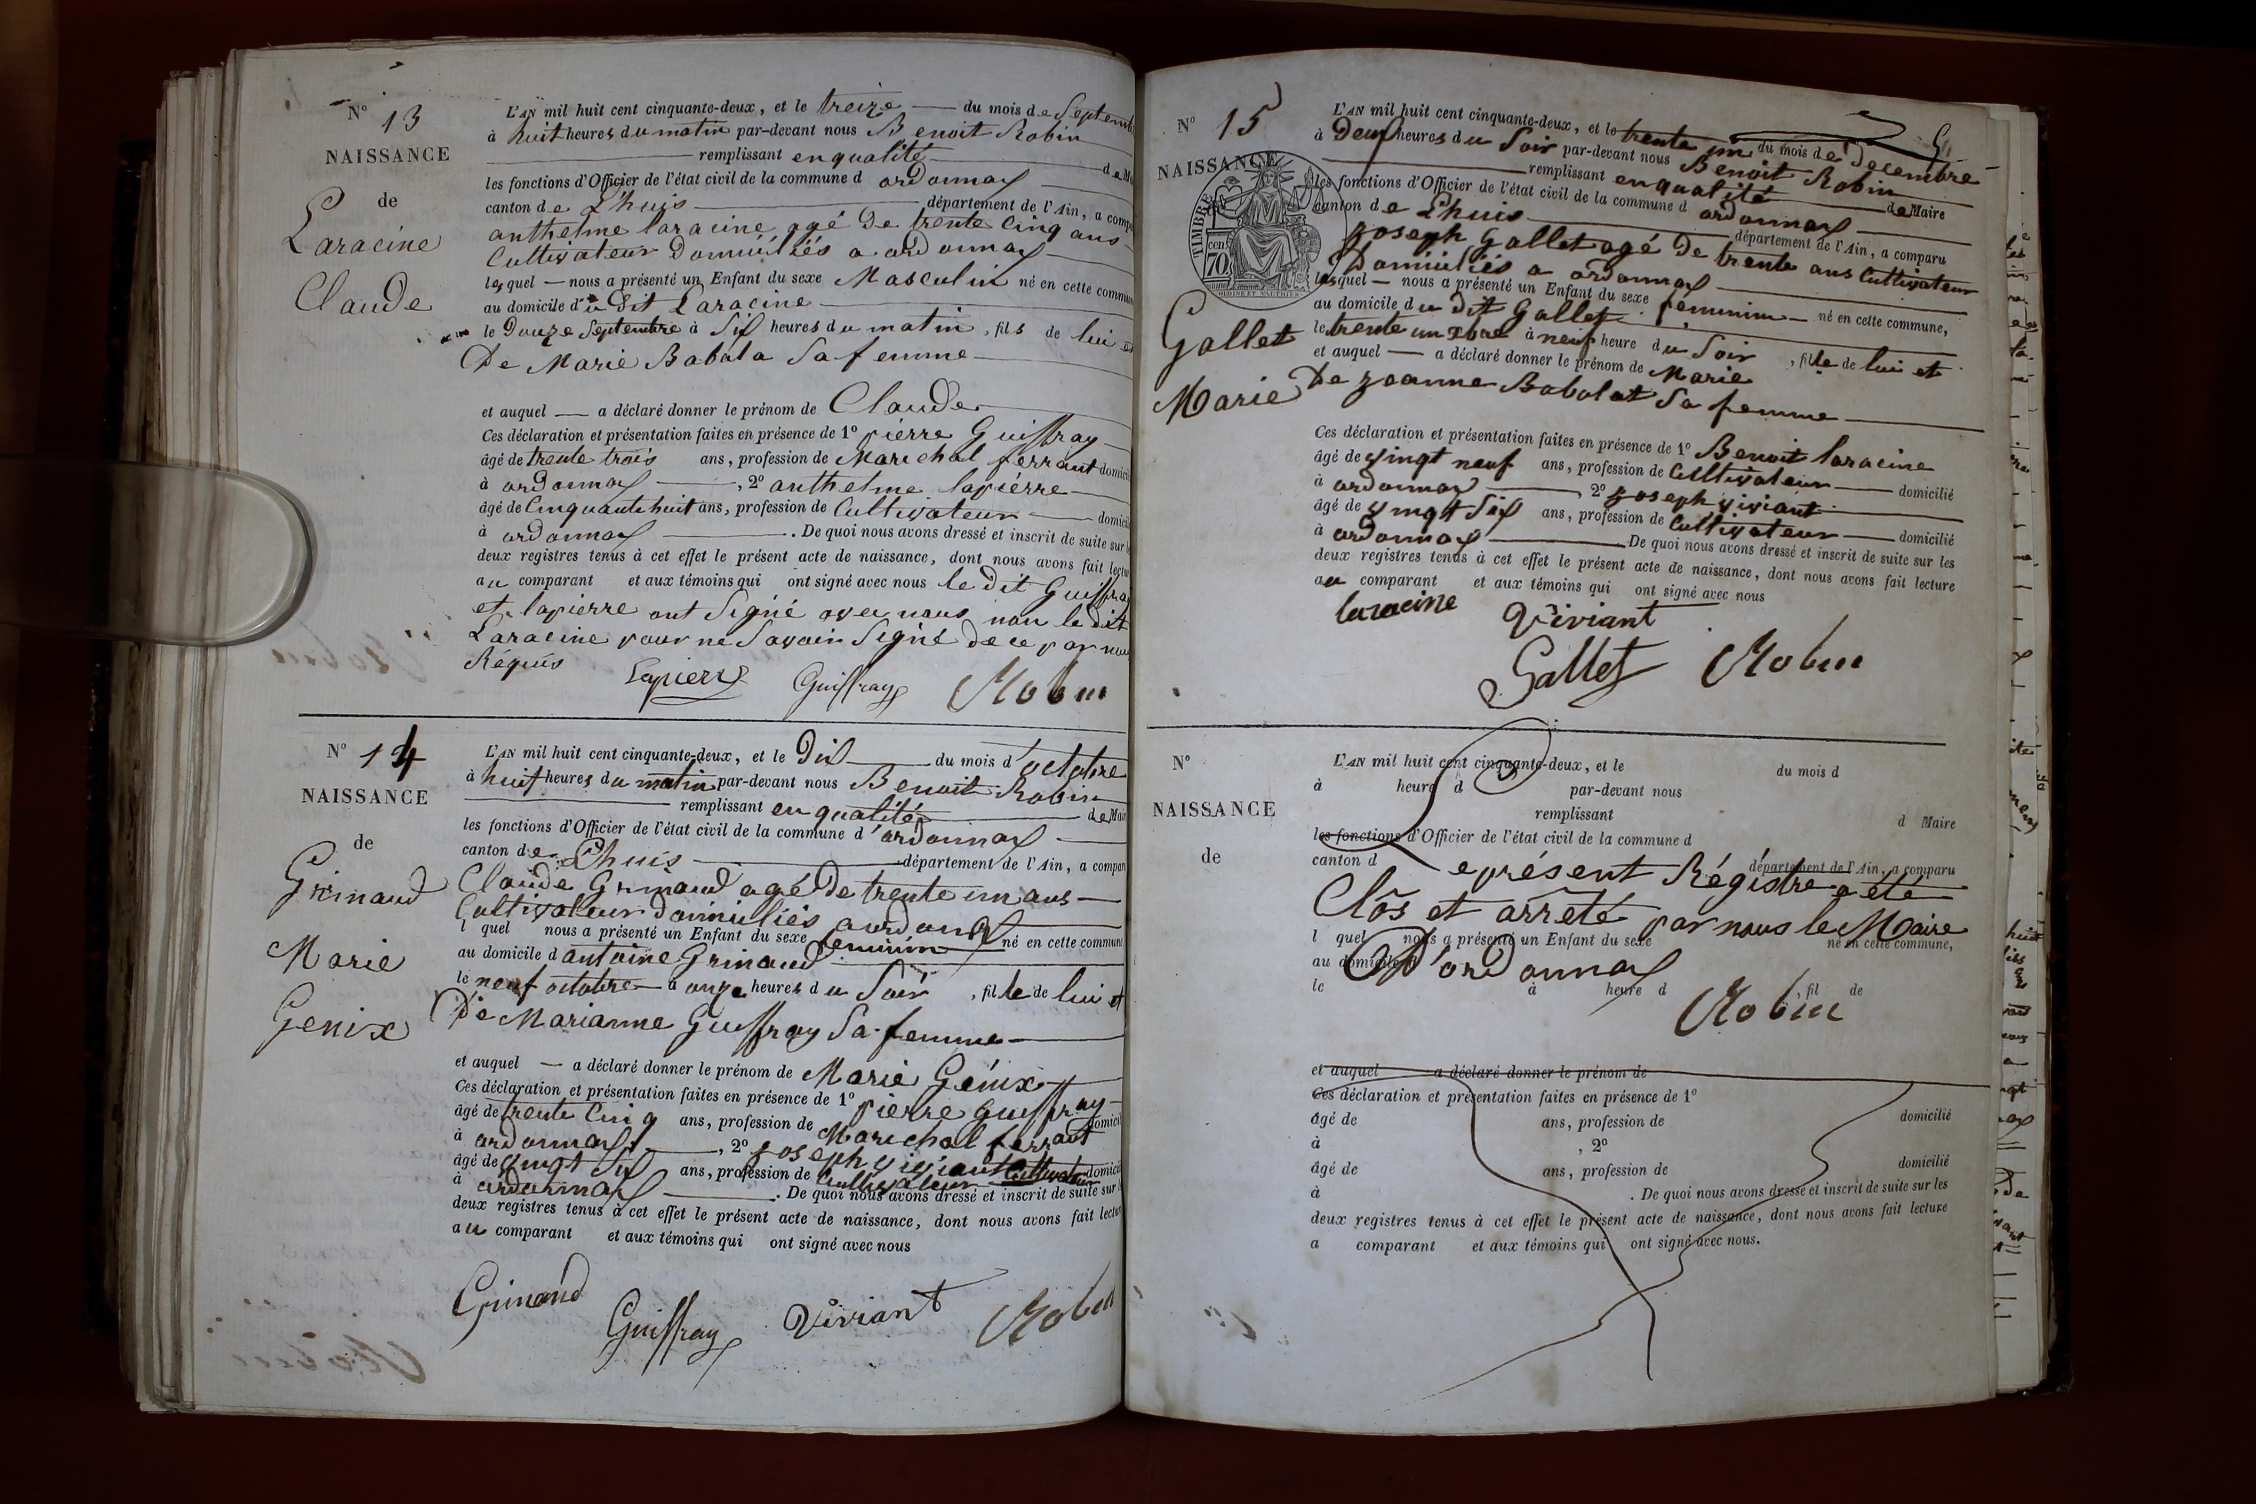 N° 13
NAISSANCE
de
Laracine
Claude
L'AN mil huit cent cinquante-deux, et le treize du mois de Septemb
à huit heures du matin par-devant nous Benoit Robin
remplissant en qualité de M
les fonctions d'Officier de l'état civil de la commune d ordonnax
canton de L'huis département de l'Ain, a compa
anthelme laracine agé De trente Cinq ans
Cultivateur Domiciliés a ordonnax
lequel nous a présenté un Enfant du sexe Masculin né en cette commun
au domicile du Dit Laracine
le Douze Septembre à Six heures du matin, fils de lui et
De Marie Babola Sa femme
et auquel a déclaré donner le prénom de Claude
Ces déclaration et présentation faites en présence de 1° pierre Guiffray
âgé de trente trois ans, profession de Marichal ferrant domicili
à ordonnax, 2° anthelme lapierre
âgé de Cinquante huit ans, profession de Cultivateur domicili
à ordonnax. De quoi nous avons dressé et inscrit de suite sur l
deux registres tenus à cet effet le présent acte de naissance, dont nous avons fait lectur
au comparant et aux témoins qui ont signé avec nous le Dit Guiffra
et lapierre ont Signé avec nous non le dit
Laracine pour ne Savoir Signé de ce par nou
Réquis
Lapierre Guiffray Robin
N° 14
NAISSANCE
de
Grimaud
Marie
Genix
L'AN mil huit cent cinquante-deux, et le Dix du mois d'octobre
à huit heures du matin par-devant nous Benoit Robin
remplissant en qualité de Mair
les fonctions d'Officier de l'état civil de la commune d'ordonnax
canton de L'huis département de l'Ain, a compar
Claude Grimaud agé De trente un ans
Cultivateur domiciliés a ordonax
l quel nous a présenté un Enfant du sexe feminin né en cette commune
au domicile d antoine Grimaud
le neuf octobre a onze heures du Soir, fille de lui et
De Marianne Guiffray Sa femme
et auquel a déclaré donner le prénom de Marie Génix
Ces déclaration et présentation faites en présence de 1° pierre Guiffray
âgé de trente Cinq ans, profession de Marichal ferrant domicil
à ordonnax, 2° joseph viviant Cultivateur
âgé de vingt Six ans, profession de Cultivateur domicil
à ordonnax. De quoi nous avons dressé et inscrit de suite sur l
deux registres tenus à cet effet le présent acte de naissance, dont nous avons fait lectur
au comparant et aux témoins qui ont signé avec nous
Grimaud Guiffray Viviant Robin
N° 15
NAISSANCE
TIMBRE
cent 70
Gallet
Marie
L'AN mil huit cent cinquante-deux, et le trente un du mois de Decembre
à Deux heures du Soir par-devant nous Benoit Robin
remplissant en qualité de Maire
les fonctions d'Officier de l'état civil de la commune d ordonnax
canton de L'huis département de l'Ain, a comparu
joseph Gallet agé De trente ans Cultivateur
Domiciliés a ordonnax
lequel nous a présenté un Enfant du sexe feminin né en cette commune,
au domicile du dit Gallet
le trente un xbre à neuf heure du Soir, fille de lui et
et auquel a déclaré donner le prénom de Marie
De jeanne Babolat Sa femme
Ces déclaration et présentation faites en présence de 1° Benoit laracine
âgé de vingt neuf ans, profession de Cultivateur domicilié
à ordonnax 2° joseph viviant
âgé de vingt Six ans, profession de Cultivateur domicilié
à ordonnax De quoi nous avons dressé et inscrit de suite sur les
deux registres tenus à cet effet le présent acte de naissance, dont nous avons fait lecture
au comparant et aux témoins qui ont signé avec nous
laracine Viviant
Gallet Robin
N°
NAISSANCE
de
L'AN mil huit cent cinquante-deux, et le du mois d
à heure d par-devant nous
remplissant d Maire
les fonctions d'Officier de l'état civil de la commune d
canton d département de l'Ain, a comparu
Le présent Régistre a été
Clôs et arrêté par nous le Maire
l quel nous a présenté un Enfant du sexe né en cette commune,
au domicile d
D'ordonnax
le à heure d, fil de
Robin
et auquel a déclaré donner le prénom de
Ces déclaration et présentation faites en présence de 1°
âgé de ans, profession de domicilié
à, 2°
âgé de ans, profession de domicilié
à. De quoi nous avons dressé et inscrit de suite sur les
deux registres tenus à cet effet le présent acte de naissance, dont nous avons fait lecture
a comparant et aux témoins qui ont signé avec nous.